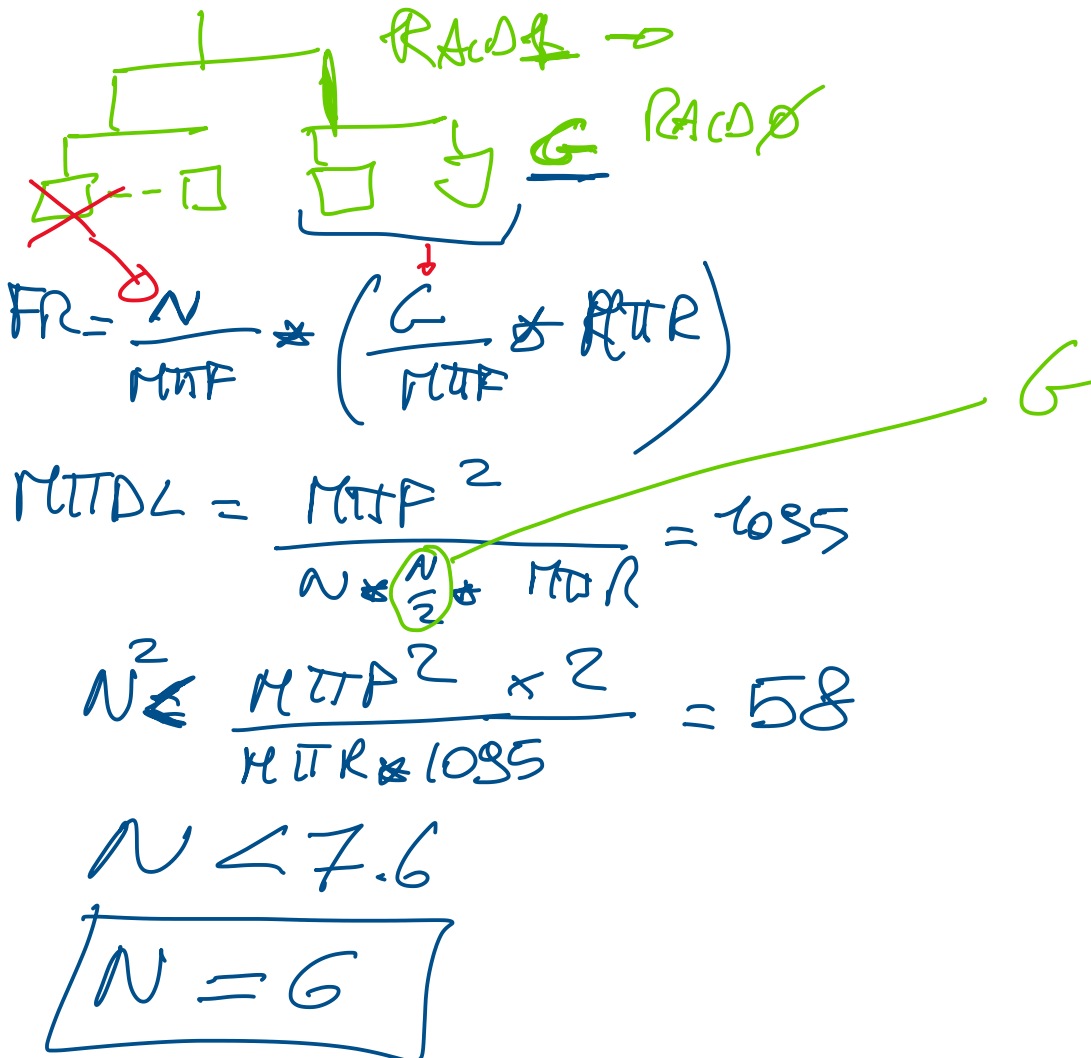 RAID1 →
RAID0
G
FR = N / MTTF * ( G / MTTF * MTTR )
G
MTTDL = MTTF² / N * N/2 * MTTR = 1095
N² < MTTF² x 2 / MTTR * 1095 = 58
N < 7.6
N = 6